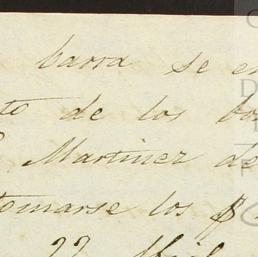 barra se en
to de los bo
Martinez de
tomarse los
22